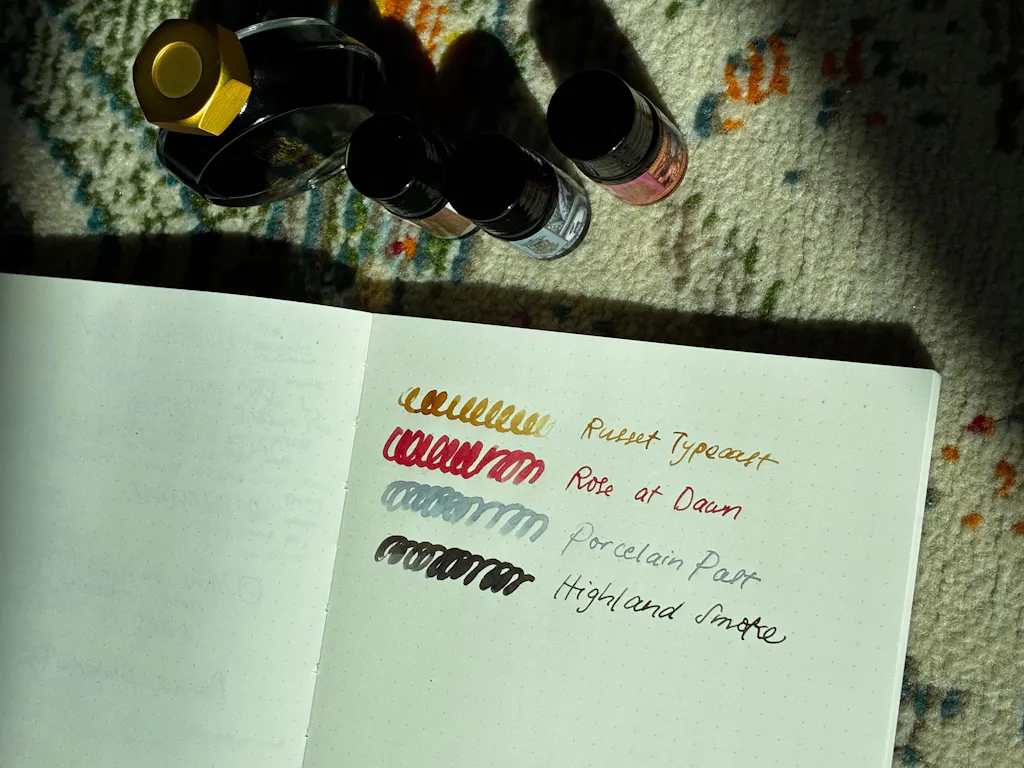 Russet Typecast
Rose at Dawn
Porcelain Past
Highland Smoke